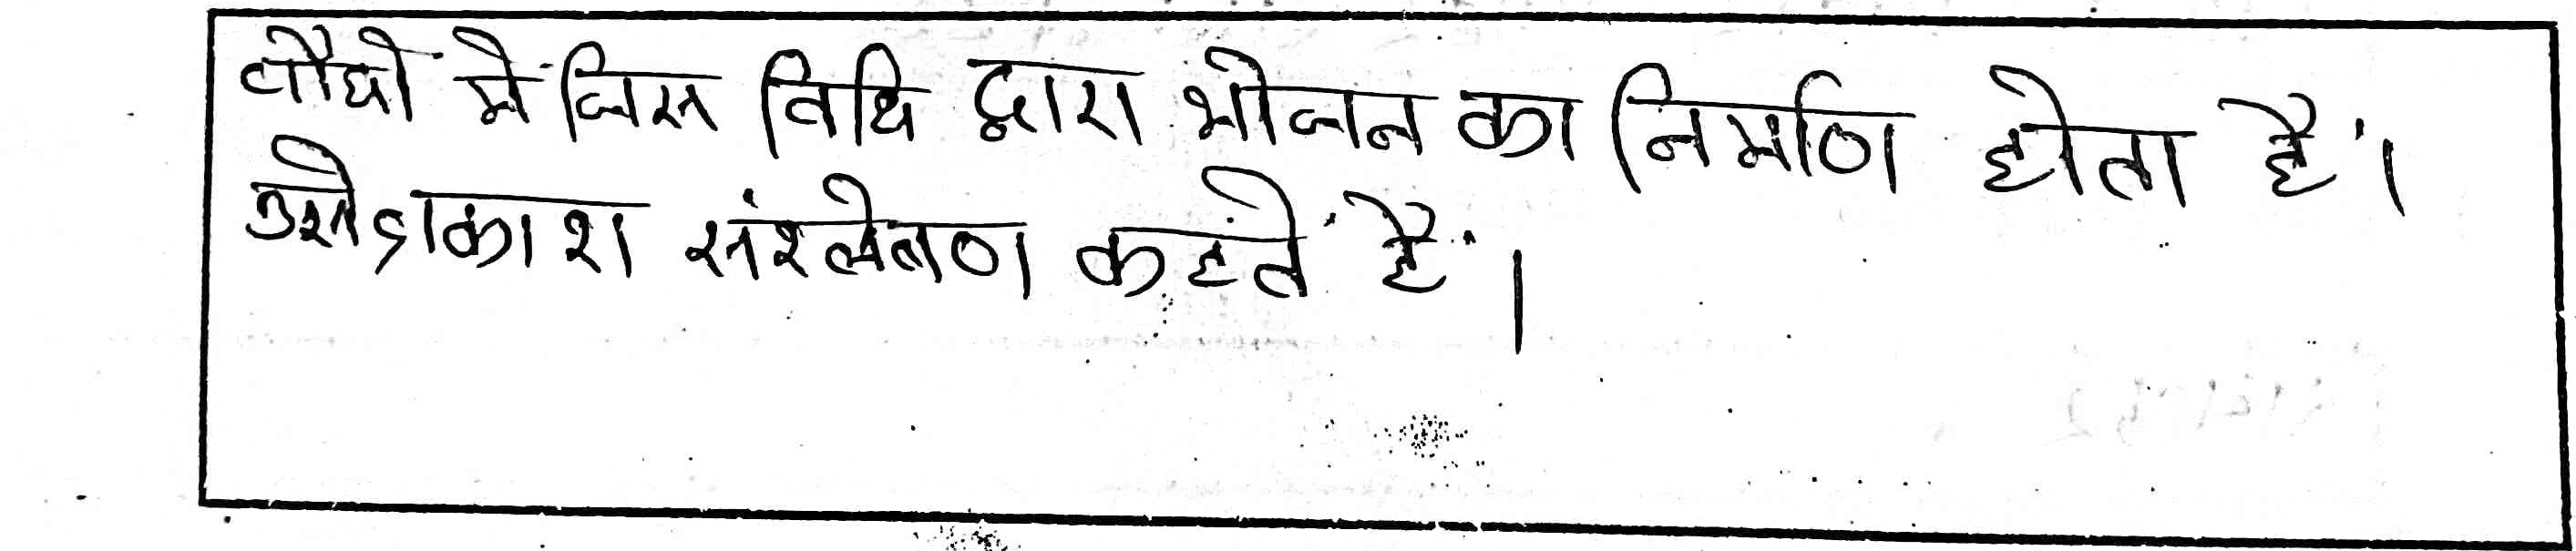 पौधों में जिस विधि द्वारा भोजन का निर्माण होता हैं।
उसे प्रकाश संश्लेषण कहते हैं।